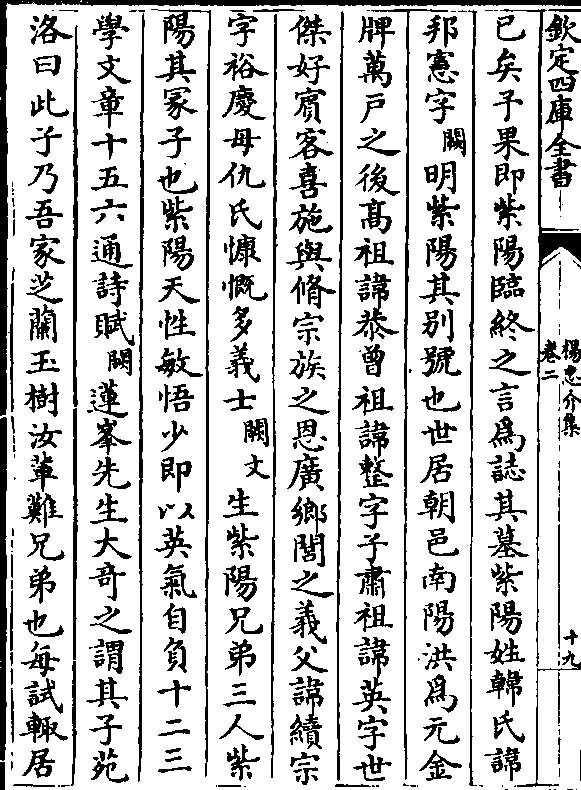 欽定四庫全書
楊忠介集
卷二
十九
已矣予果即紫陽臨終之言爲誌其墓紫陽姓韓氏諱
邦憲字闕明紫陽其别號也世居朝邑南陽洪爲元金
牌萬戸之後髙祖諱恭曾祖諱整字子肅祖諱英字世
傑好賔客喜施與脩宗族之恩廣鄉閭之義父諱續宗
字裕慶母仇氏慷慨多義士闕文生紫陽兄弟三人紫
陽其冢子也紫陽天性敏悟少即以英氣自負十二三
學文章十五六通詩賦闕蓮峯先生大竒之謂其子苑
洛曰此子乃吾家芝蘭玉樹汝軰難兄弟也每試輙居